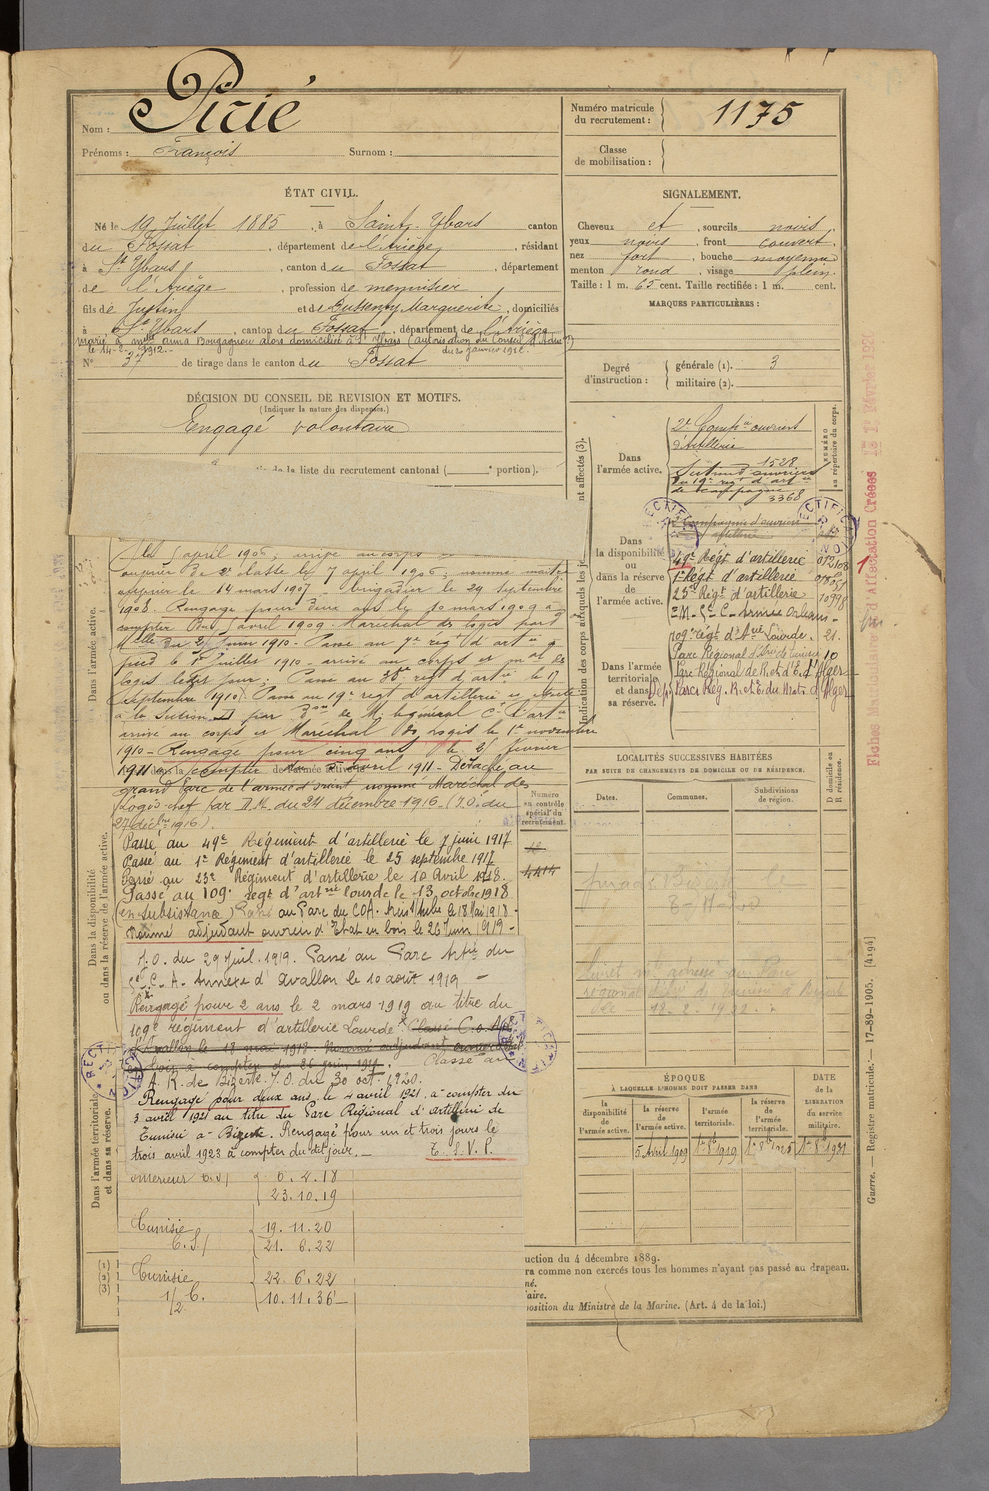 Nom : Pirié
Prénoms : François Surnom :
Numéro matricule du recrutement : 1175
Classe de mobilisation :
ÉTAT CIVIL.
Né le 19 Juillet 1885, à Saint-Ybars canton
du Fossat, département de l'Ariège, résidant
à St Ybars, canton du Fossat, département
de l'Ariège, profession de menuisier
fils de Justin et de Marguerite, domiciliés
à St Ybars, canton du Fossat, département de l'Ariège
marié à Melle Anna Bougagnou alors domiciliée à St Ybars (autorisation du Conseil d'Adm)
le 14-2-1912.- du 20 Janvier 1912.
N° 37 de tirage dans le canton du Fossat
DÉCISION DU CONSEIL DE REVISION ET MOTIFS.
(Indiquer la nature des dispenses.)
Engagé volontaire
de la liste du recrutement cantonal ( e portion).
SIGNALEMENT.
Cheveux et, sourcils noirs
yeux noirs, front couvert,
nez fort, bouche moyenne
menton rond, visage plein.
Taille : 1 m. 65 cent. Taille rectifiée : 1 m. cent.
MARQUES PARTICULIÈRES :
Degré d'instruction : générale (1). 3
militaire (2).
Indication des corps auxquels les jeunes gens sont affectés (3).
NUMÉRO au répertoire du corps.
Dans l'armée active.
2e Compie ouvriers
d'Artillerie
Section d'ouvriers 1528
du 19e regt d'artie
de campagne 3368
Dans la disponibilité ou dans la réserve de l'armée active.
2e Compagnie d'ouvriers
artillerie
49e Régt d'artillerie
1er Régt d'artillerie
23e Régt d'artillerie
109e régt d'Arie Lourde. 21.
Dans l'armée territoriale et dans sa réserve.
Parc Régional d'Arie de Tunisie 10
Parc Régional de R. et d'E. d'Alger
Dépt Parc Rég. R. et E. du Mat. d'Alger
Fiches Matriculaire et d'Affectation Créées le 1er Février 1921
Dans l'armée active.
le 5 avril 1906; arrivé au corps
ouvrier de 2e classe le 7 avril 1906; nommé maître
ouvrier le 14 mars 1907 - brigadier le 29 septembre
1908. Rengagé pour deux ans le 10 mars 1909 à
compter du 5 avril 1909. Maréchal des logis
du 25 Juin 1910 - Passé au 7e regt d'artie à
pied le 1er Juillet 1910 - arrivé au corps et mal des
logis ledit jour; Passé au 38e regt d'artie le 17
septembre 1910. Passé au 19e regt d'artillerie et
à la Section par Don de M. le général Ct l'artie
arrivé au corps et Maréchal des Logis le 1er novembre
1910 - Rengagé pour cinq ans le 25 février
1911 à compter du 5 avril 1911 - Détaché au
grand Parc de l'armée d'orient nommé Maréchal des
Logis chef par D.M. du 24 décembre 1916 - (J.O. du
27 décbre 1916).
Dans la disponibilité ou dans la réserve de l'armée active.
Passé au 49e Régiment d'artillerie le 7 juin 1917
Passé au 1er Régiment d'artillerie le 25 septembre 1917
Passé au 23e Régiment d'artillerie le 10 Avril 1918.
Passé au 109e régt d'artie lourde le 13 octobre 1918
(en subsistance) Passé au Parc du COA. le 18 Mai 1918 -
Nommé adjudant ouvrier d'Etat en bois le 26 Juin 1919 -
J.O. du 29 Juil. 1919. Passé au Parc Artie du
C. A. Annexe d'Avallon le 10 août 1919 -
Rengagé pour 2 ans le 2 mars 1919 au titre du
109e régiment d'artillerie Lourde
d'Avallon le 18 mai 1918. Nommé adjudant ouvrier d'Etat
en bois à compter du 26 juin 1919. Classé au
A.R. de Bizerte. J.O. du 30 oct. 1920.
Rengagé pour deux ans le 4 avril 1921 à compter du
3 avril 1921 au titre du Parc Régional d'artillerie de
Tunisie à Bizerte. Rengagé pour un et trois jours le
trois avril 1923 à compter du dit jour. -
T. S. V. P.
Dans l'armée territoriale et dans sa réserve.
Intérieur C.S/ 6.4.18
23.10.19
Tunisie 19.11.20
C.S/ 21.6.22
Tunisie 22.6.22
1/2 C. 10.11.36
(1)
(2)
(3)
Numéro au contrôle spécial du recrutement.
4414
LOCALITÉS SUCCESSIVES HABITÉES
PAR SUITE DE CHANGEMENTS DE DOMICILE OU DE RÉSIDENCE.
Dates. Communes. Subdivisions de région. D domicile ou R résidence.
ÉPOQUE
À LAQUELLE L'HOMME DOIT PASSER DANS
la disponibilité de l'armée active. la réserve de l'armée active. l'armée territoriale. la réserve de l'armée territoriale.
DATE de la LIBÉRATION du service militaire.
5 Avril 1909 1er 8bre 1919 1er 8bre 1925 1er 8bre 1931
uction du 4 décembre 1889.
ra comme non exercés tous les hommes n'ayant pas passé au drapeau.
né.
aire.
position du Ministre de la Marine. (Art. 4 de la loi.)
Guerre. — Registre matricule. — 17-89-1905. [4194]